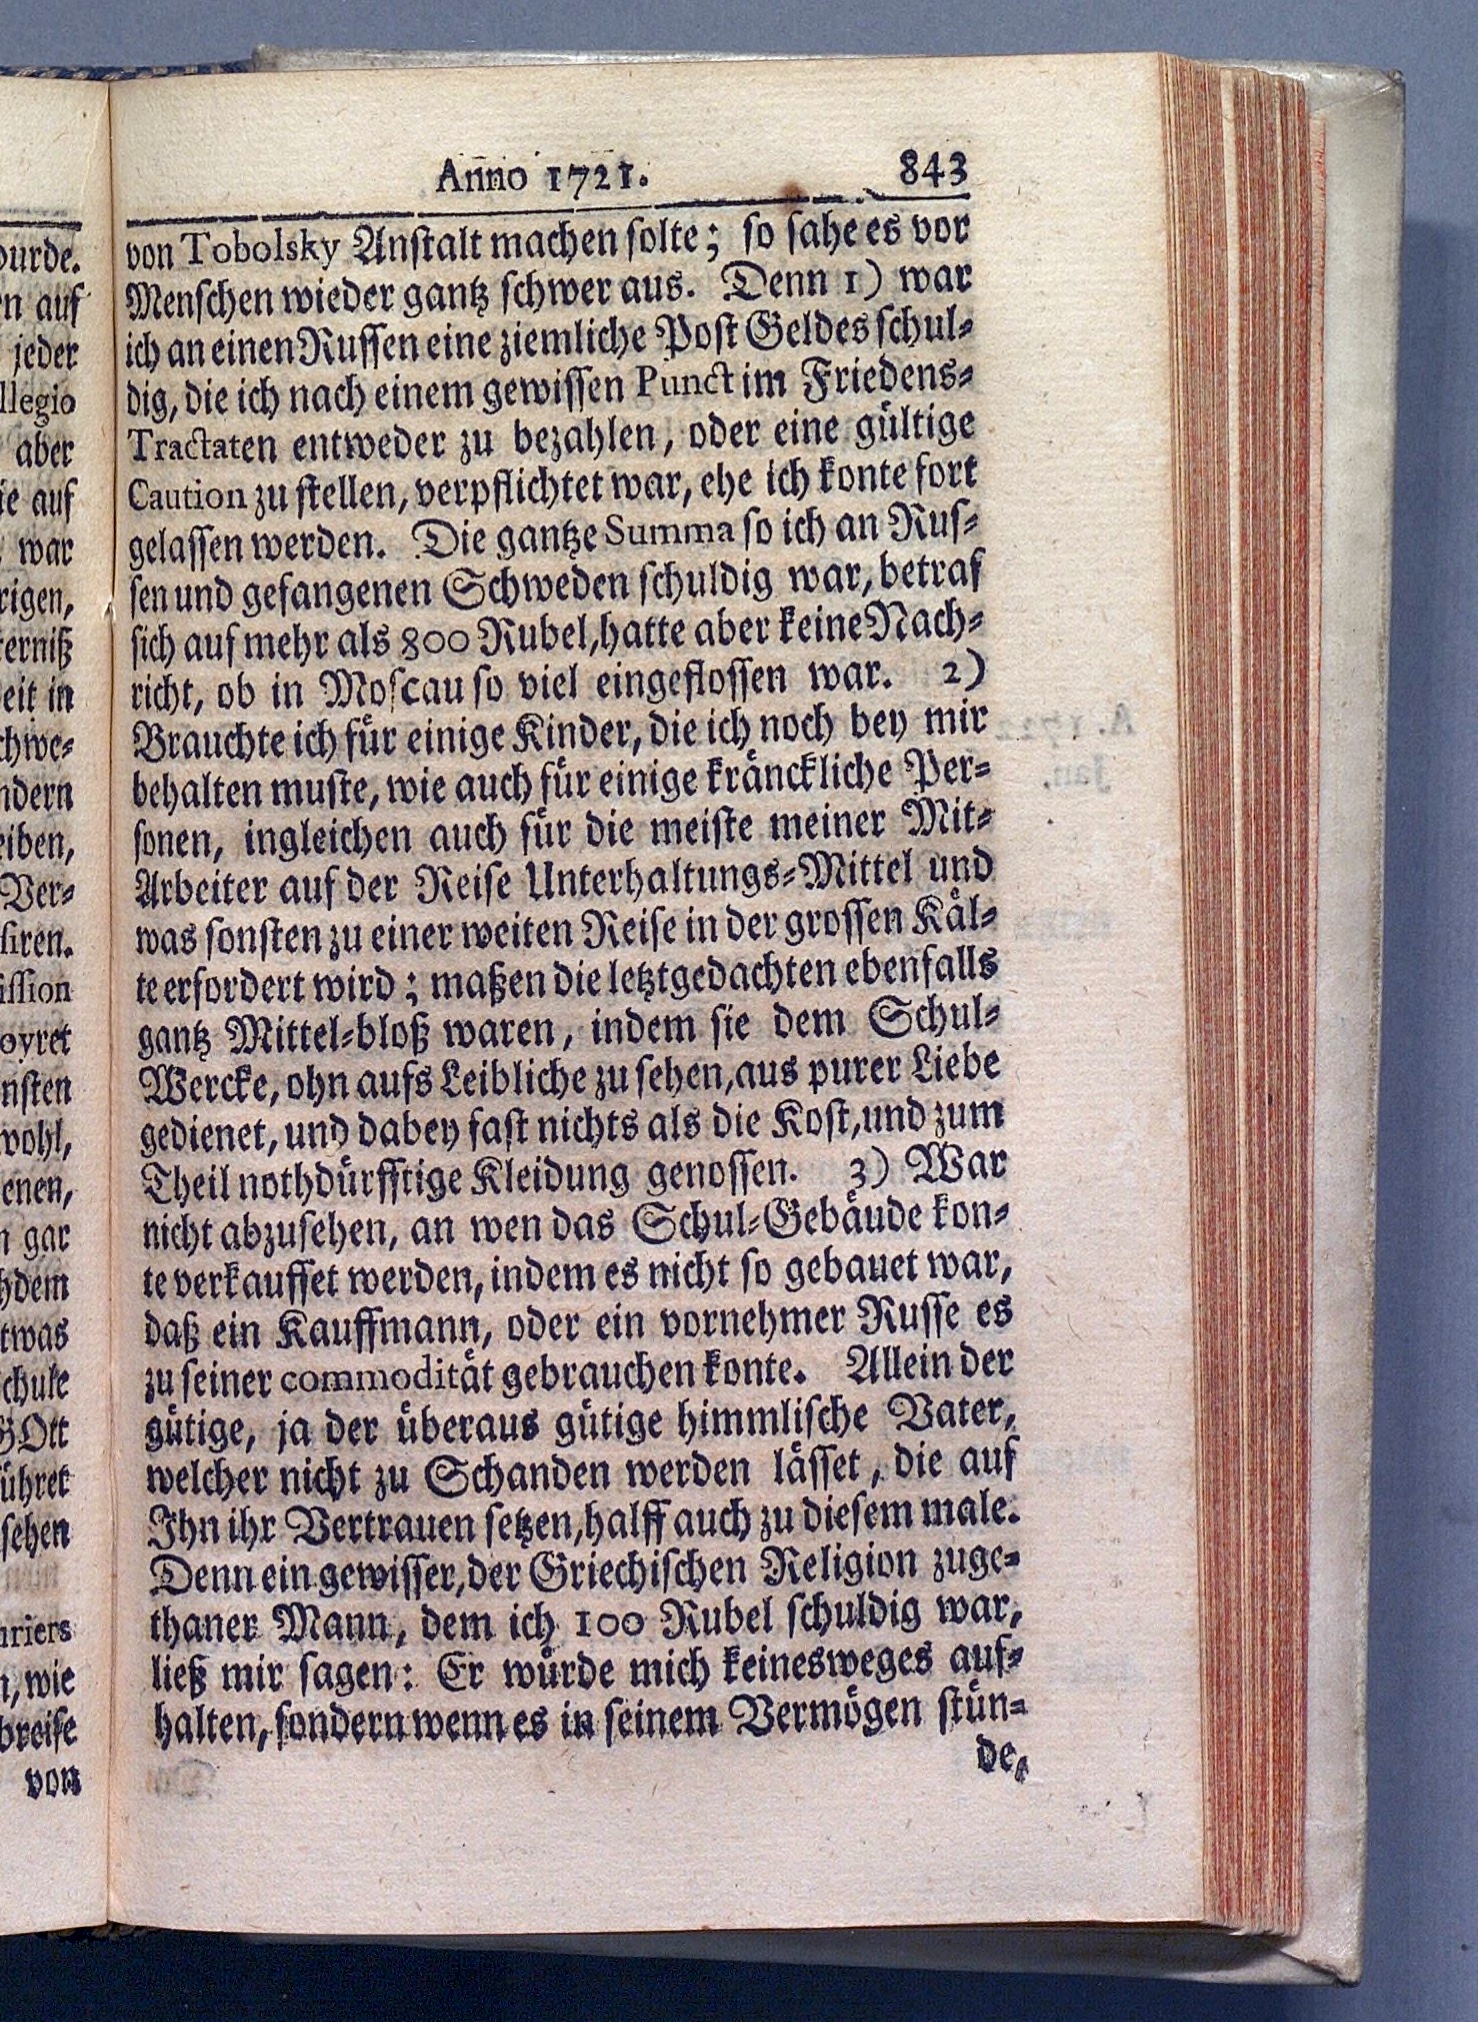 Anno 1721. 843
von Tobolsky Anstalt machen solte; so sahe es vor
Menschen wieder gantz schwer aus. Denn 1) war
ich an einen Russen eine ziemliche Post Geldes schul-
dig, die ich nach einem gewissen Punct im Friedens-
Tractaten entweder zu bezahlen, oder eine gültige
Caution zu stellen, verpflichtet war, ehe ich konte fort
gelassen werden. Die gantze Summa so ich an Rus-
sen und gefangenen Schweden schuldig war, betraf
sich auf mehr als 800 Rubel, hatte aber keine Nach-
richt, ob in Moscau so viel eingeflossen war. 2)
Brauchte ich für einige Kinder, die ich noch bey mir
behalten muste, wie auch für einige kränckliche Per-
sonen, ingleichen auch für die meiste meiner Mit-
Arbeiter auf der Reise Unterhaltungs-Mittel und
was sonsten zu einer weiten Reise in der grossen Käl-
te erfordert wird; maßen die letztgedachten ebenfalls
gantz Mittel-bloß waren, indem sie dem Schul-
Wercke, ohn aufs Leibliche zu sehen, aus purer Liebe
gedienet, und dabey fast nichts als die Kost, und zum
Theil nothdürfftige Kleidung genossen. 3) War
nicht abzusehen, an wen das Schul-Gebäude kon-
te verkauffet werden, indem es nicht so gebauet war,
daß ein Kauffmann, oder ein vornehmer Russe es
zu seiner commodität gebrauchen konte. Allein der
gütige, ja der überaus gütige himmlische Vater,
welcher nicht zu Schanden werden lässet, die auf
Ihn ihr Vertrauen setzen, halff auch zu diesem male.
Denn ein gewisser, der Griechischen Religion zuge-
thaner Mann, dem ich 100 Rubel schuldig war,
ließ mir sagen: Er würde mich keinesweges auf-
halten, sondern wenn es in seinem Vermögen stün-
de,